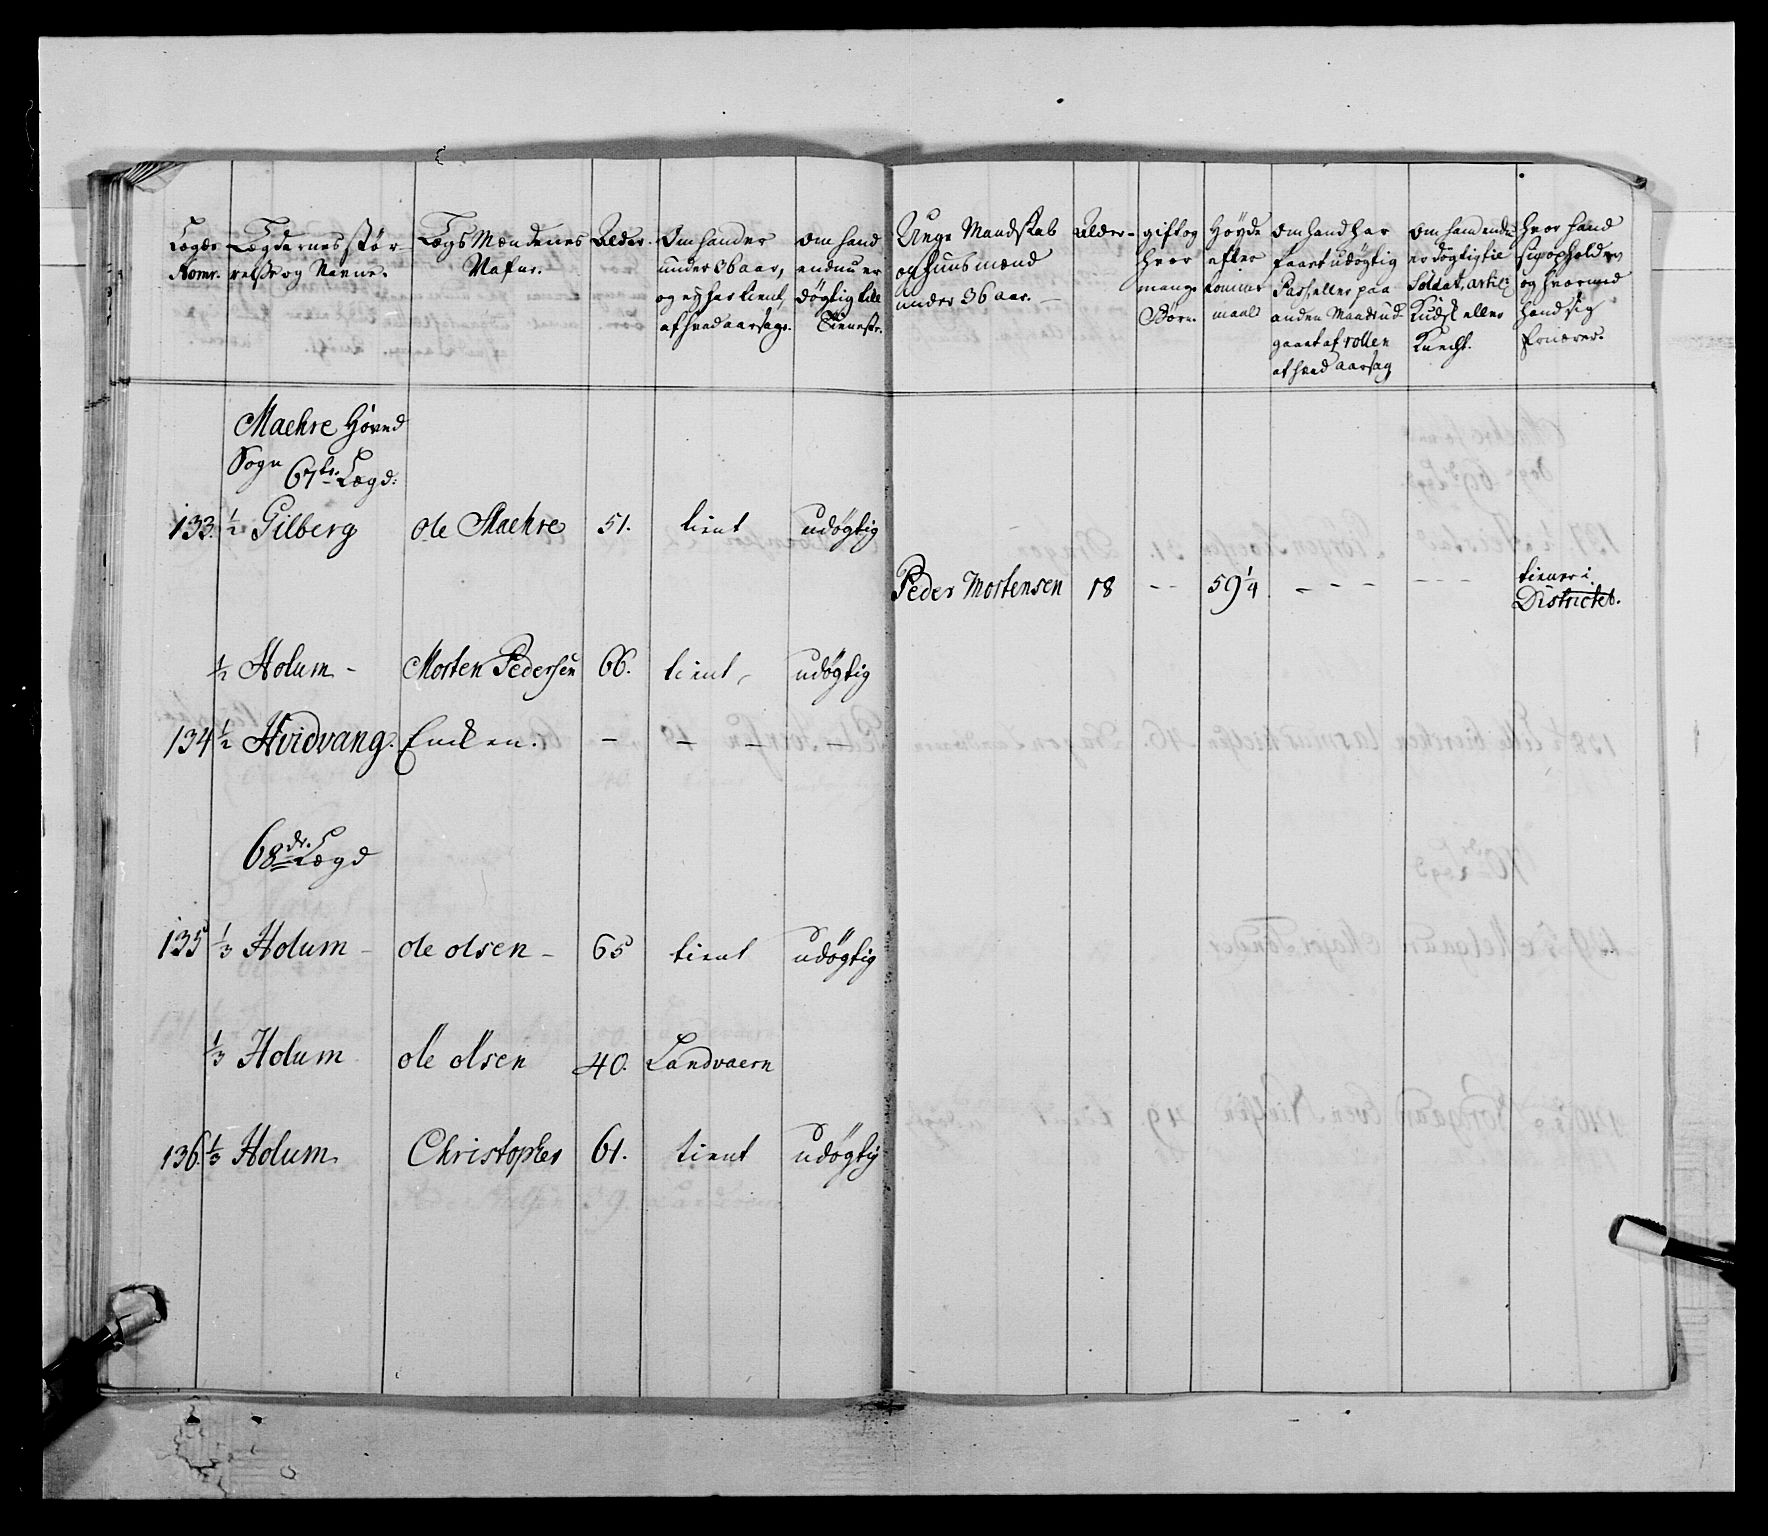 Legds Nomr.
Legdernes stør relse og Navne.
Legs Mændenes Nafne.
Alder.
Om hand er under 36 aar, og ej har tient, af hvad aarsag.
Om hand endnu er døgtig till Tieneste.
Unge Mandskab og huusmænd under 36 aar.
Alder
gift og hvor mange Børn.
Høyde efter tomme maal
Om hand har faaet udøgtig Pass eller paa anden Maade ud gaaet af rollen af hvad aarsag
Om hand endnu er døgtig til Soldat, artil: Kudsk eller Knecht.
hvor hand sig opholder og hvormed hand sig ernærer.
Maehre Hoved
Sogn 67de Lægd:
133. 1/2 Gilberg ole Maehre 51. tient udøgtig
Peder Mortensen 18 - - 59 1/4 - - - - - - tiener i Districtet.
1/2 Holum - Morten Pedersen 66. tient, udøgtig
134 1/2 Hvidvang. Encken. - - - -
68de Lægd
135 1/3 Holum - ole olsen - 65 tient udøgtig
1/3 Holum ole olsen 40. Landvaern
136. 1/3 Holum Christopher 61. tient udøgtig